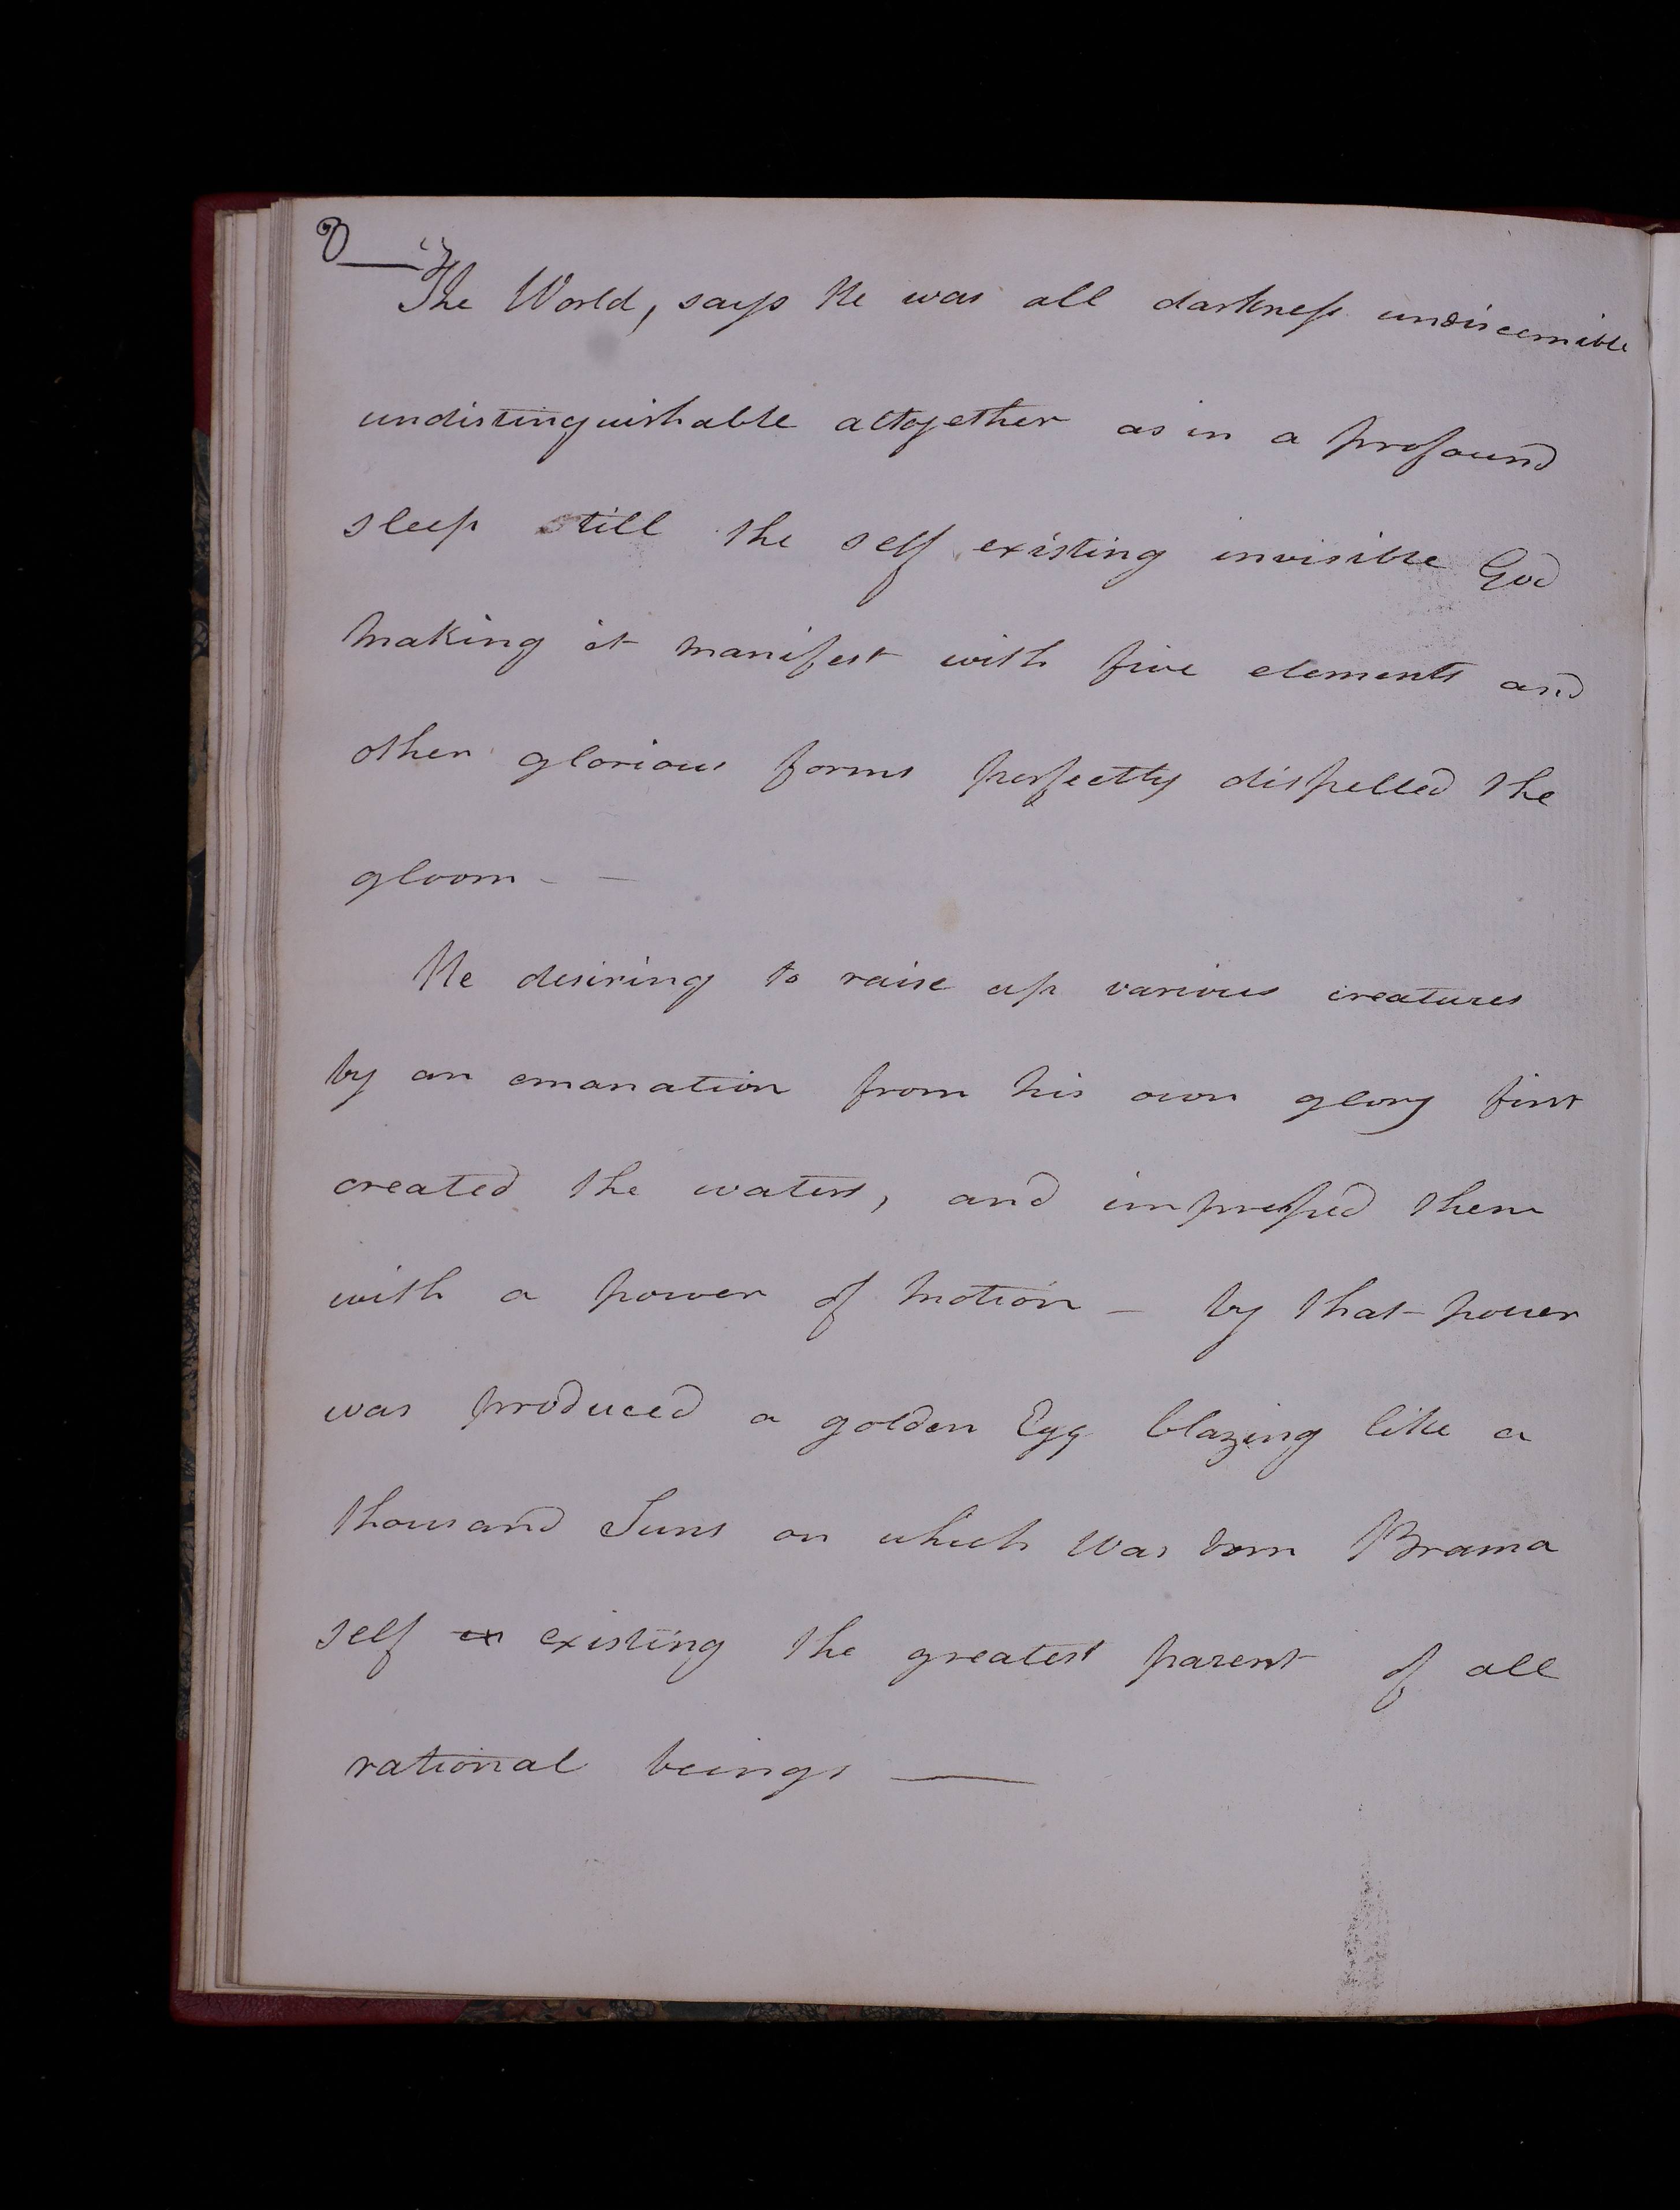 "The World, says He was all darkness undiscernible
undistinguishable altogether as in a profound
sleep still the self existing invisible God
making it manifest with five elements and
other glorious forms perfectly dispelled the
gloom - —
He desiring to raise up various creatures
by an emanation from his own glory first
created the waters, and impressed them
with a power of motion — by that power
was produced a golden Egg blazing like a
thousand Suns on which was born Brama
self ex existing the greatest parent of all
rational beings —